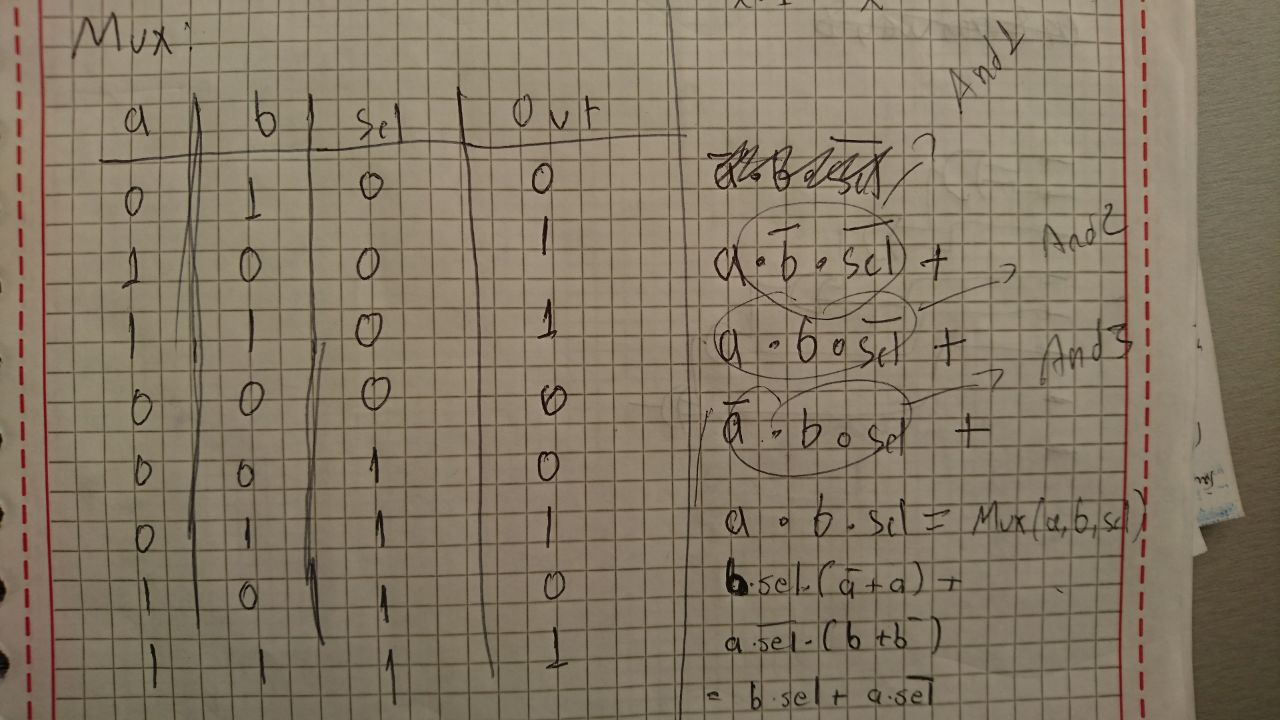 Mux:
a b sel Out
0 1 0 0
1 0 0 1
1 1 0 1
0 0 0 0
0 0 1 0
0 1 1 1
1 0 1 0
1 1 1 1
And1
a·b̅·s̅e̅l̅ +
And2
a·b·s̅e̅l̅ +
And3
a̅·b·sel +
a·b·sel = Mux(a,b,sel)
b·sel·(a̅+a) +
a·s̅e̅l̅·(b+b̅)
= b·sel + a·s̅e̅l̅